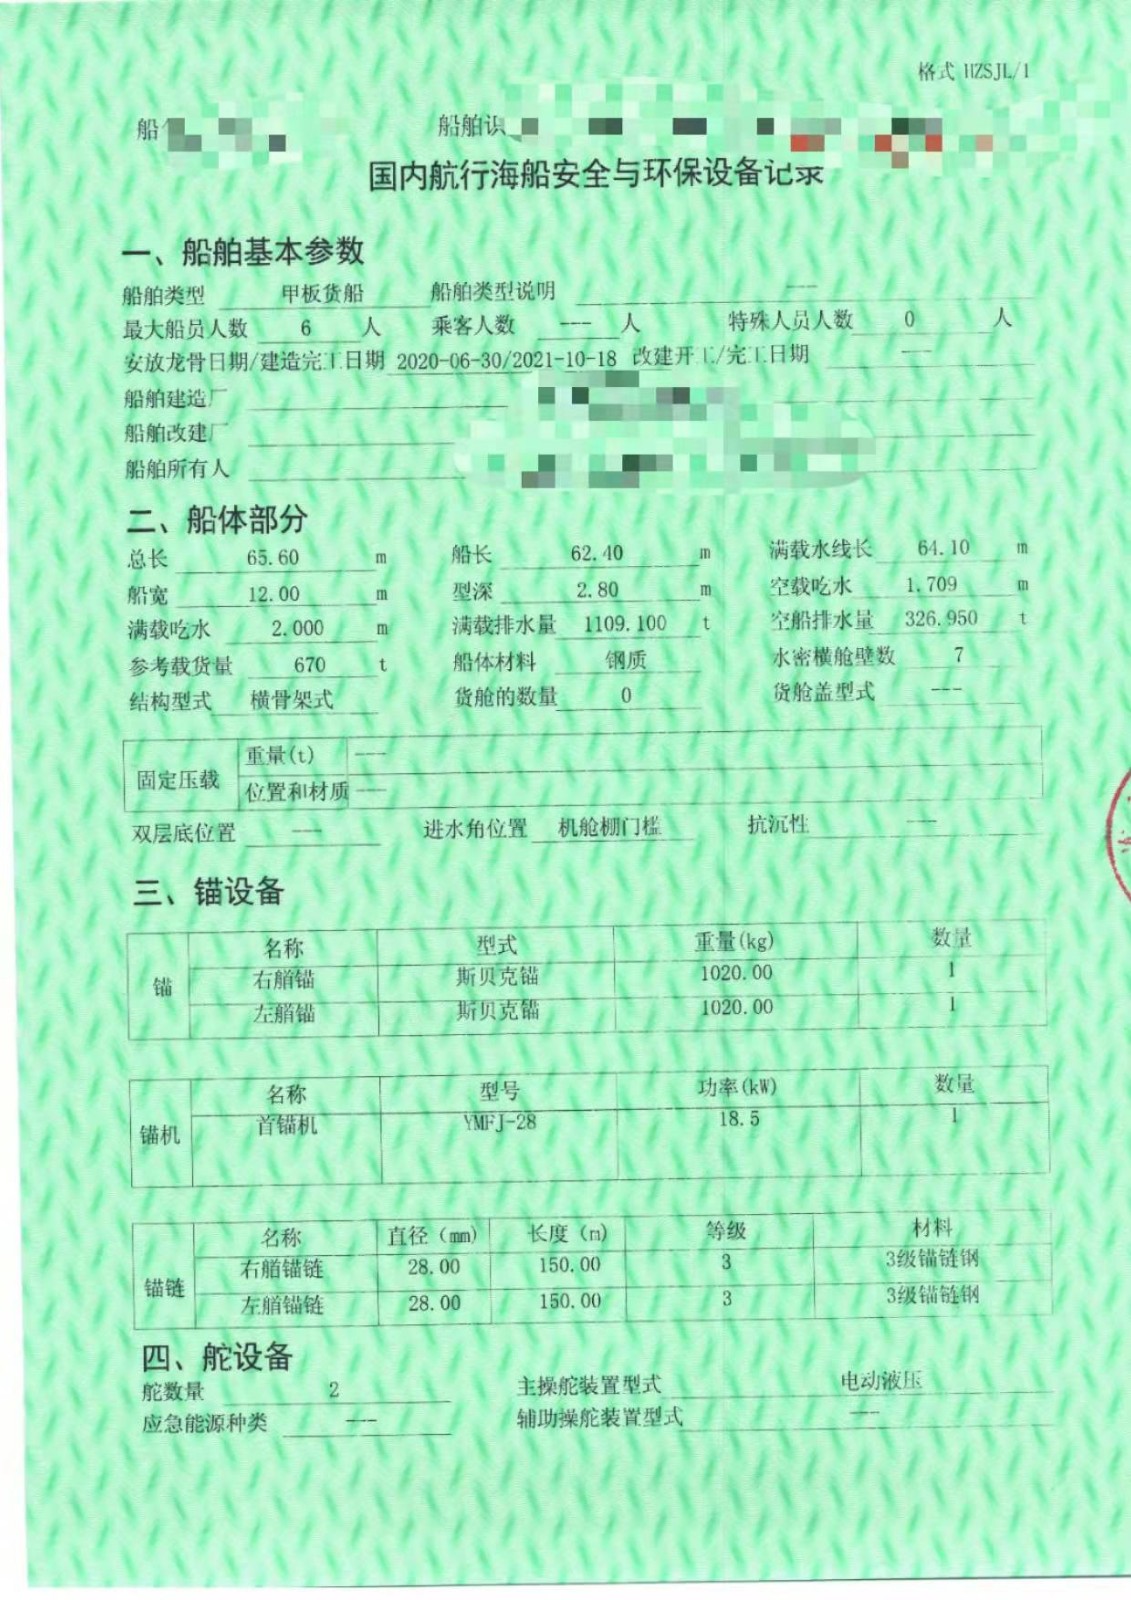 格式 HZSJL/1
船 船舶识
国内航行海船安全与环保设备记录
一、船舶基本参数
船舶类型 甲板货船 船舶类型说明 ---
最大船员人数 6 人 乘客人数 --- 人 特殊人员人数 0 人
安放龙骨日期/建造完工日期 2020-06-30/2021-10-18 改建开工/完工日期 ---
船舶建造厂
船舶改建厂
船舶所有人
二、船体部分
总长 65.60 m 船长 62.40 m 满载水线长 64.10 m
船宽 12.00 m 型深 2.80 m 空载吃水 1.709 m
满载吃水 2.000 m 满载排水量 1109.100 t 空船排水量 326.950 t
参考载货量 670 t 船体材料 钢质 水密横舱壁数 7
结构型式 横骨架式 货舱的数量 0 货舱盖型式 ---
固定压载 重量(t) ---
位置和材质 ---
双层底位置 --- 进水角位置 机舱棚门槛 抗沉性 ---
三、锚设备
锚 名称 型式 重量(kg) 数量
右艏锚 斯贝克锚 1020.00 1
左艏锚 斯贝克锚 1020.00 1
锚机 名称 型号 功率(kW) 数量
首锚机 YMFJ-28 18.5 1
锚链 名称 直径（mm) 长度（m) 等级 材料
右艏锚链 28.00 150.00 3 3级锚链钢
左艏锚链 28.00 150.00 3 3级锚链钢
四、舵设备
舵数量 2 主操舵装置型式 电动液压
应急能源种类 --- 辅助操舵装置型式 ---